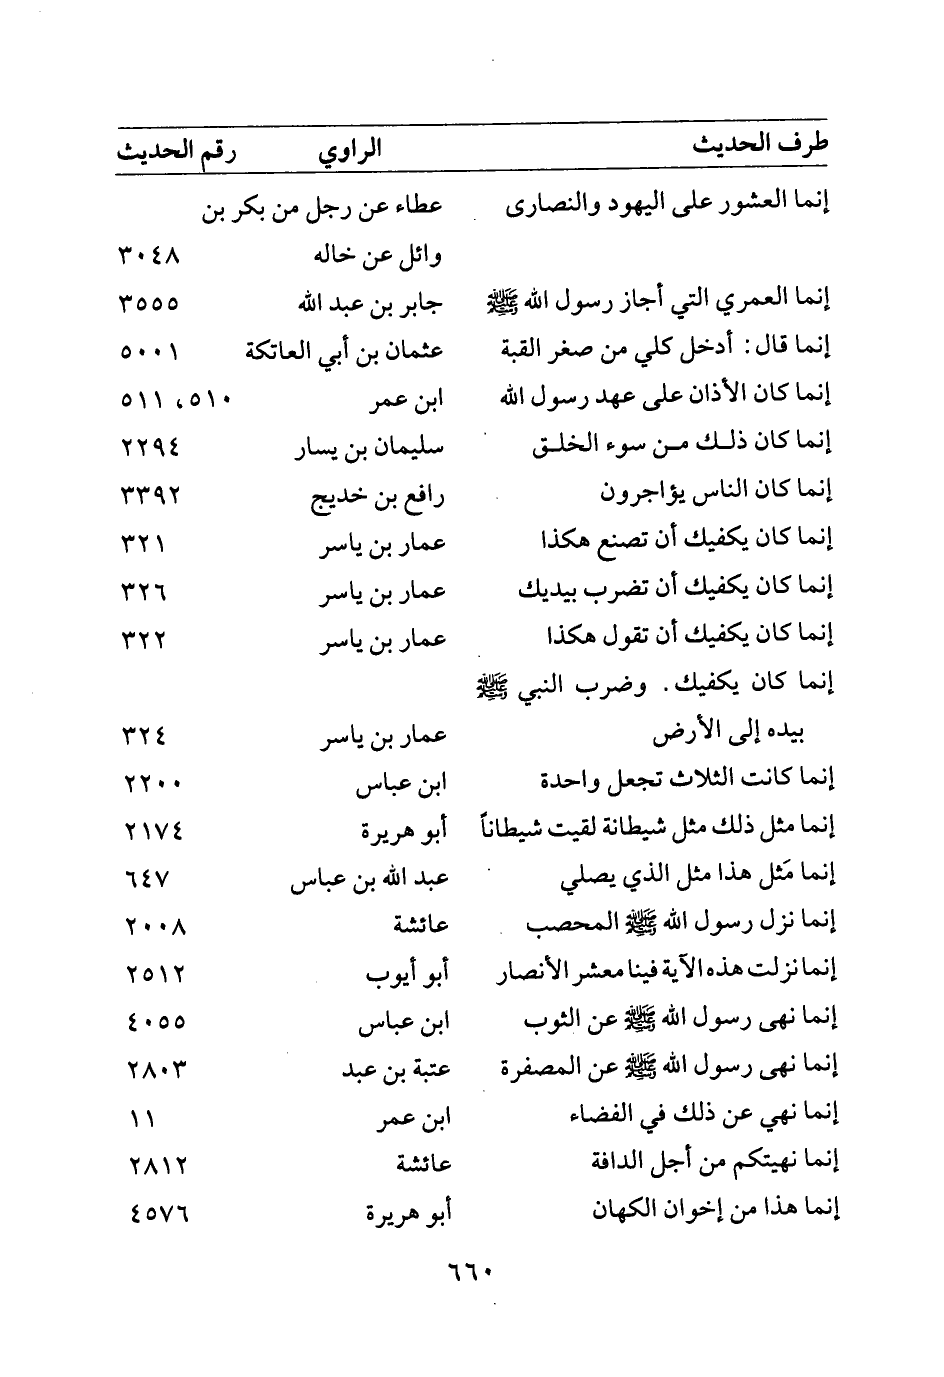 طرف الحديث الراوي رقم الحديث
إنما العشور على اليهود والنصارى عطاء عن رجل من بكر بن
وائل عن خاله ٣٠٤٨
إنما العمري التي أجاز رسول الله ﷺ جابر بن عبد الله ٣٥٥٥
إنما قال: أدخل كلي من صغر القبة عثمان بن أبي العاتكة ٥٠٠١
إنما كان الأذان على عهد رسول الله ابن عمر ٥١٠، ٥١١
إنما كان ذلك من سوء الخلق سليمان بن يسار ٢٢٩٤
إنما كان الناس يؤاجرون رافع بن خديج ٣٣٩٢
إنما كان يكفيك أن تصنع هكذا عمار بن ياسر ٣٢١
إنما كان يكفيك أن تضرب بيديك عمار بن ياسر ٣٢٦
إنما كان يكفيك أن تقول هكذا عمار بن ياسر ٣٢٢
إنما كان يكفيك. وضرب النبي ﷺ
بيده إلى الأرض عمار بن ياسر ٣٢٤
إنما كانت الثلاث تجعل واحدة ابن عباس ٢٢٠٠
إنما مثل ذلك مثل شيطانة لقيت شيطاناً أبو هريرة ٢١٧٤
إنما مَثل هذا مثل الذي يصلي عبد الله بن عباس ٦٤٧
إنما نزل رسول الله ﷺ المحصب عائشة ٢٠٠٨
إنما نزلت هذه الآية فينا معشر الأنصار أبو أيوب ٢٥١٢
إنما نهى رسول الله ﷺ عن الثوب ابن عباس ٤٠٥٥
إنما نهى رسول الله ﷺ عن المصفرة عتبة بن عبد ٢٨٠٣
إنما نهي عن ذلك في الفضاء ابن عمر ١١
إنما نهيتكم من أجل الدافة عائشة ٢٨١٢
إنما هذا من إخوان الكهان أبو هريرة ٤٥٧٦
٦٦٠